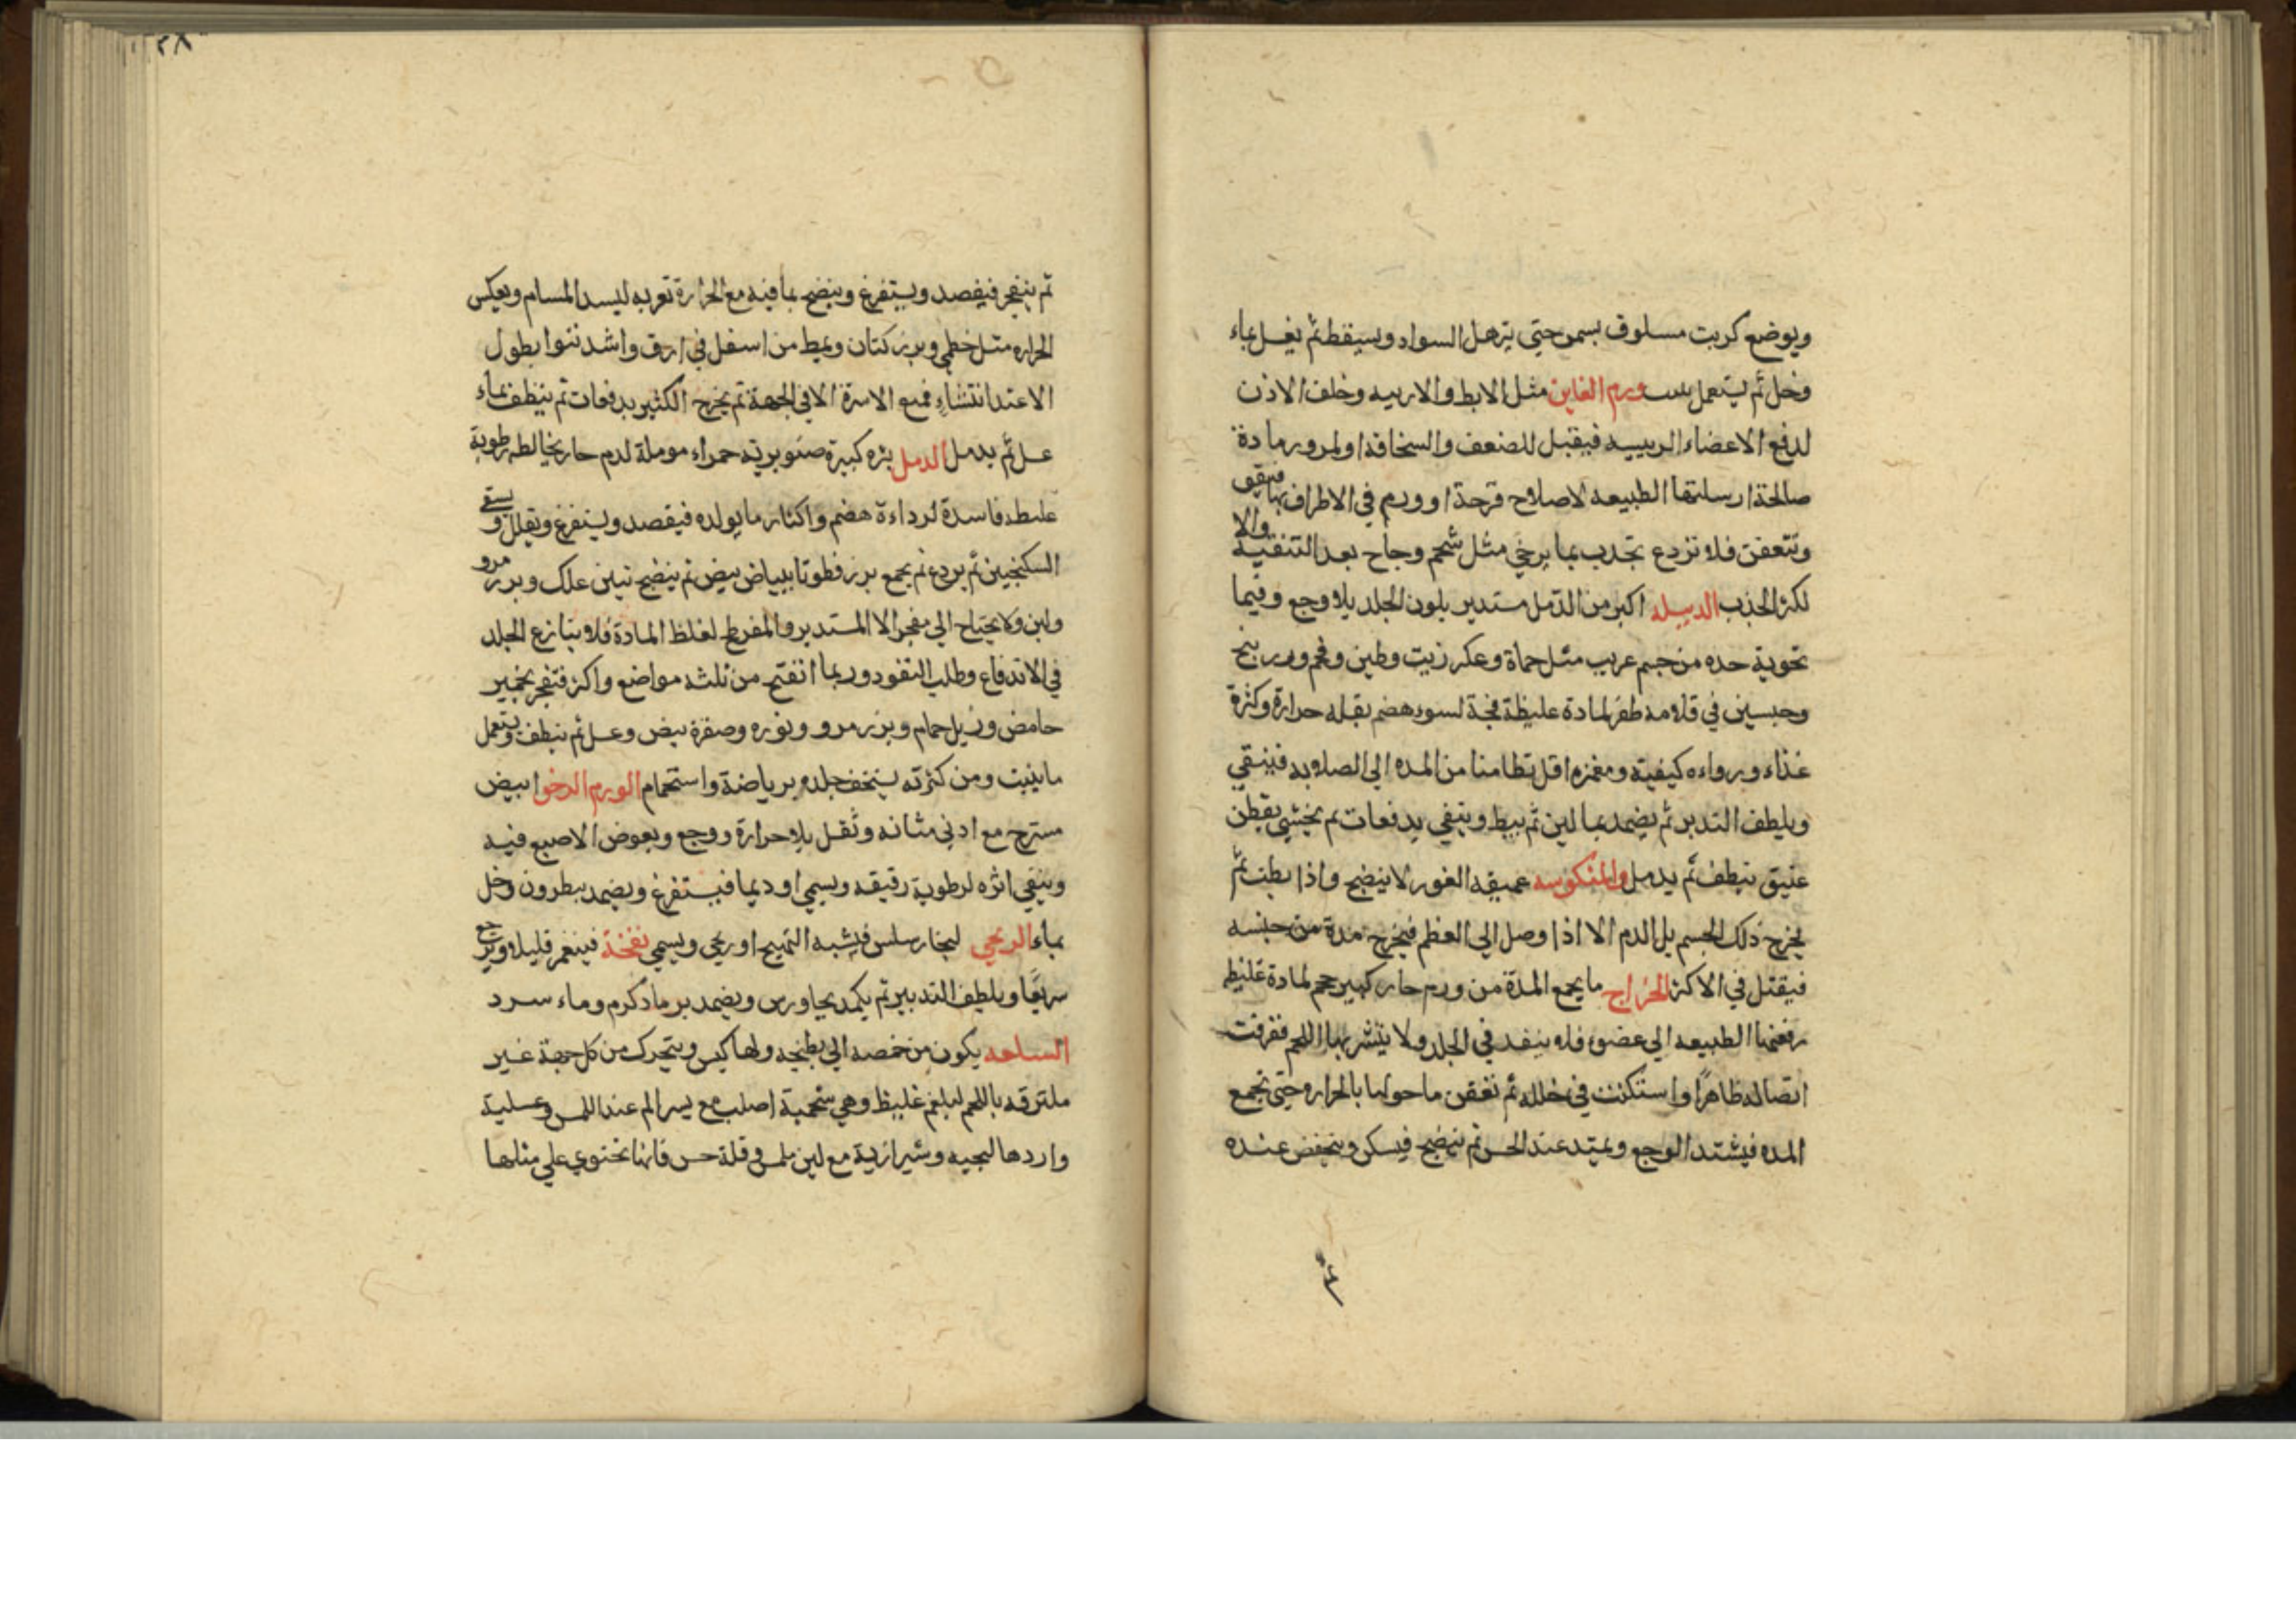 ويوضع كرنب مسلوق بسمن حتى يترهل السواد ويسقط ثم يغسل بماء
وخل ثم يستعمل ورم الغابن مثل الابط والاربيه وخلف الاذن
لدفع الاعضاء الرييسه فيقبل للضعف والسخافة او لمرور مادة
صالحة ارسلتها الطبيعه لاصلاح قرحة او ورم في الاطراف بها
وتتعفن فلا تردع تجدب بما يرخي مثل شحم وجاح بعد التنقية والا
لكن الجذب الدبيله اكبر من الدمل مستدير بلون الجلد بلا وجع وفيما
تحويه حده من جسم غريب مثل حماة وعكر زيت وطين وفحم وزرنيخ
وجبسين في قلامه ظفر لمادة غليظة فجة لسوء هضم بقله حرارة وكثرة
غذاء ورداءه كيفية ومغمزه اقل تطامنا من المده الى الصلابه فينقي
ويلطف التدبير ثم يضمد بما لين ثم يبط وينقي بدفعات ثم يحشى بقطن
عتيق ينظف ثم يدمل والمنكوسه عميقه الغور لا ينضج واذا بطت ثم
يخرج ذلك الجسم بل الدم الا اذا وصل الى العظم فيخرج مدة من جنسه
فيقتل في الاكثر الخراج ما يجمع المدة من ورم حار كبير حجم لمادة غليظه
رفعتها الطبيعه الى عضو فلا ينفد في الجلد ولا يتشربها اللحم ففرقت
اتصاله ظاهرا واستكنت في خلله ثم تعفن ما حولها بالحراره حتى تجمع
المده فيشتد الوجع ويمتد عند الحس ثم ينضج فيسكن وينخفض عنده
ثم ينفجر فيفصد ويستفرغ وينضج بما فيه مع الحرارة تغريه ليسد المسام ويعكس
الحراره مثل خطمي وبزر كتان ويبط من اسفل في ارق واشد نتوا بطول
الاعتدا فمع الاسرة الا في الجبهة ثم يخرج الكثير بدفعات ثم ينظف بماء
عسل ثم يدمل الدمل بثره كبيرة صنوبرية حمراء مولمة لدم حار يخالطه رطوبة
غليظه فاسدة لرداءة هضم واكثار ما يولده فيفصد ويستفرغ ويقلل ويسقى
السكنجبين ثم يردع ثم يجمع بزر قطونا ببياض بيض ثم ينضج بتين علك وبزر مرو
ولبن ولا يحتاج الى مفجر الا المستدير والمفرط لغلظ المادة فلا ينازع الجلد
في الاندفاع وطلب النفود وربما انفتح من ثلثه مواضع واكثر فتفجر بخمير
حامض وزبل حمام وبزر مرو ونوره وصفرة بيض وعسل ثم ينظف ويستعمل
ما ينبت ومن كثرته يسخف جلده برياضة واستحمام الورم الرخو ابيض
مسترخ مع ادنى متانه وثقل بلا حرارة ووجع ويغوص الاصبع فيه
ويبقي اثره لرطوبة رقيقه ويسمى اوديما فيستفرغ ويضمد بنطرون وخل
بماء الريحي لبخار سلس فيشبه التهيج او ريحي ويسمى نفخة فينغمز قليلا ويرجع
سريعا ويلطف التدبير ثم يكمد بجاورس ويضمد برماد كرم وماء سرد
السلعه يكون من حمصه الى بطيخه ولها كيس ويتحرك من كل جهة غير
ملتزقه باللحم لبلغم غليظ وهي شحمية اصلب مع يسر الم عند اللمس وعسلية
واردهالجيه وشيرازية مع لين ملمس وقلة حس فانها تحتوي على مثلها